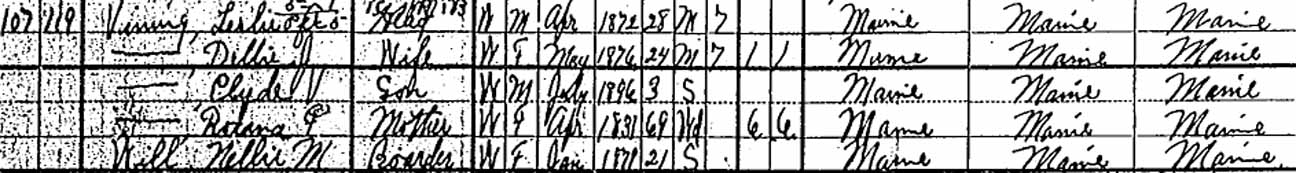 107 119 Vining, Leslie Head W M Apr 1872 28 M 7 Maine Maine Maine
— Dellie J Wife W F May 1876 24 M 7 1 1 Maine Maine Maine
— Clyde V Son W M July 1896 3 S Maine Maine Maine
— Mother W F Apr 1831 69 Wd 6 6 Maine Maine Maine
Nellie M Boarder W F Jan 21 S Maine Maine Maine